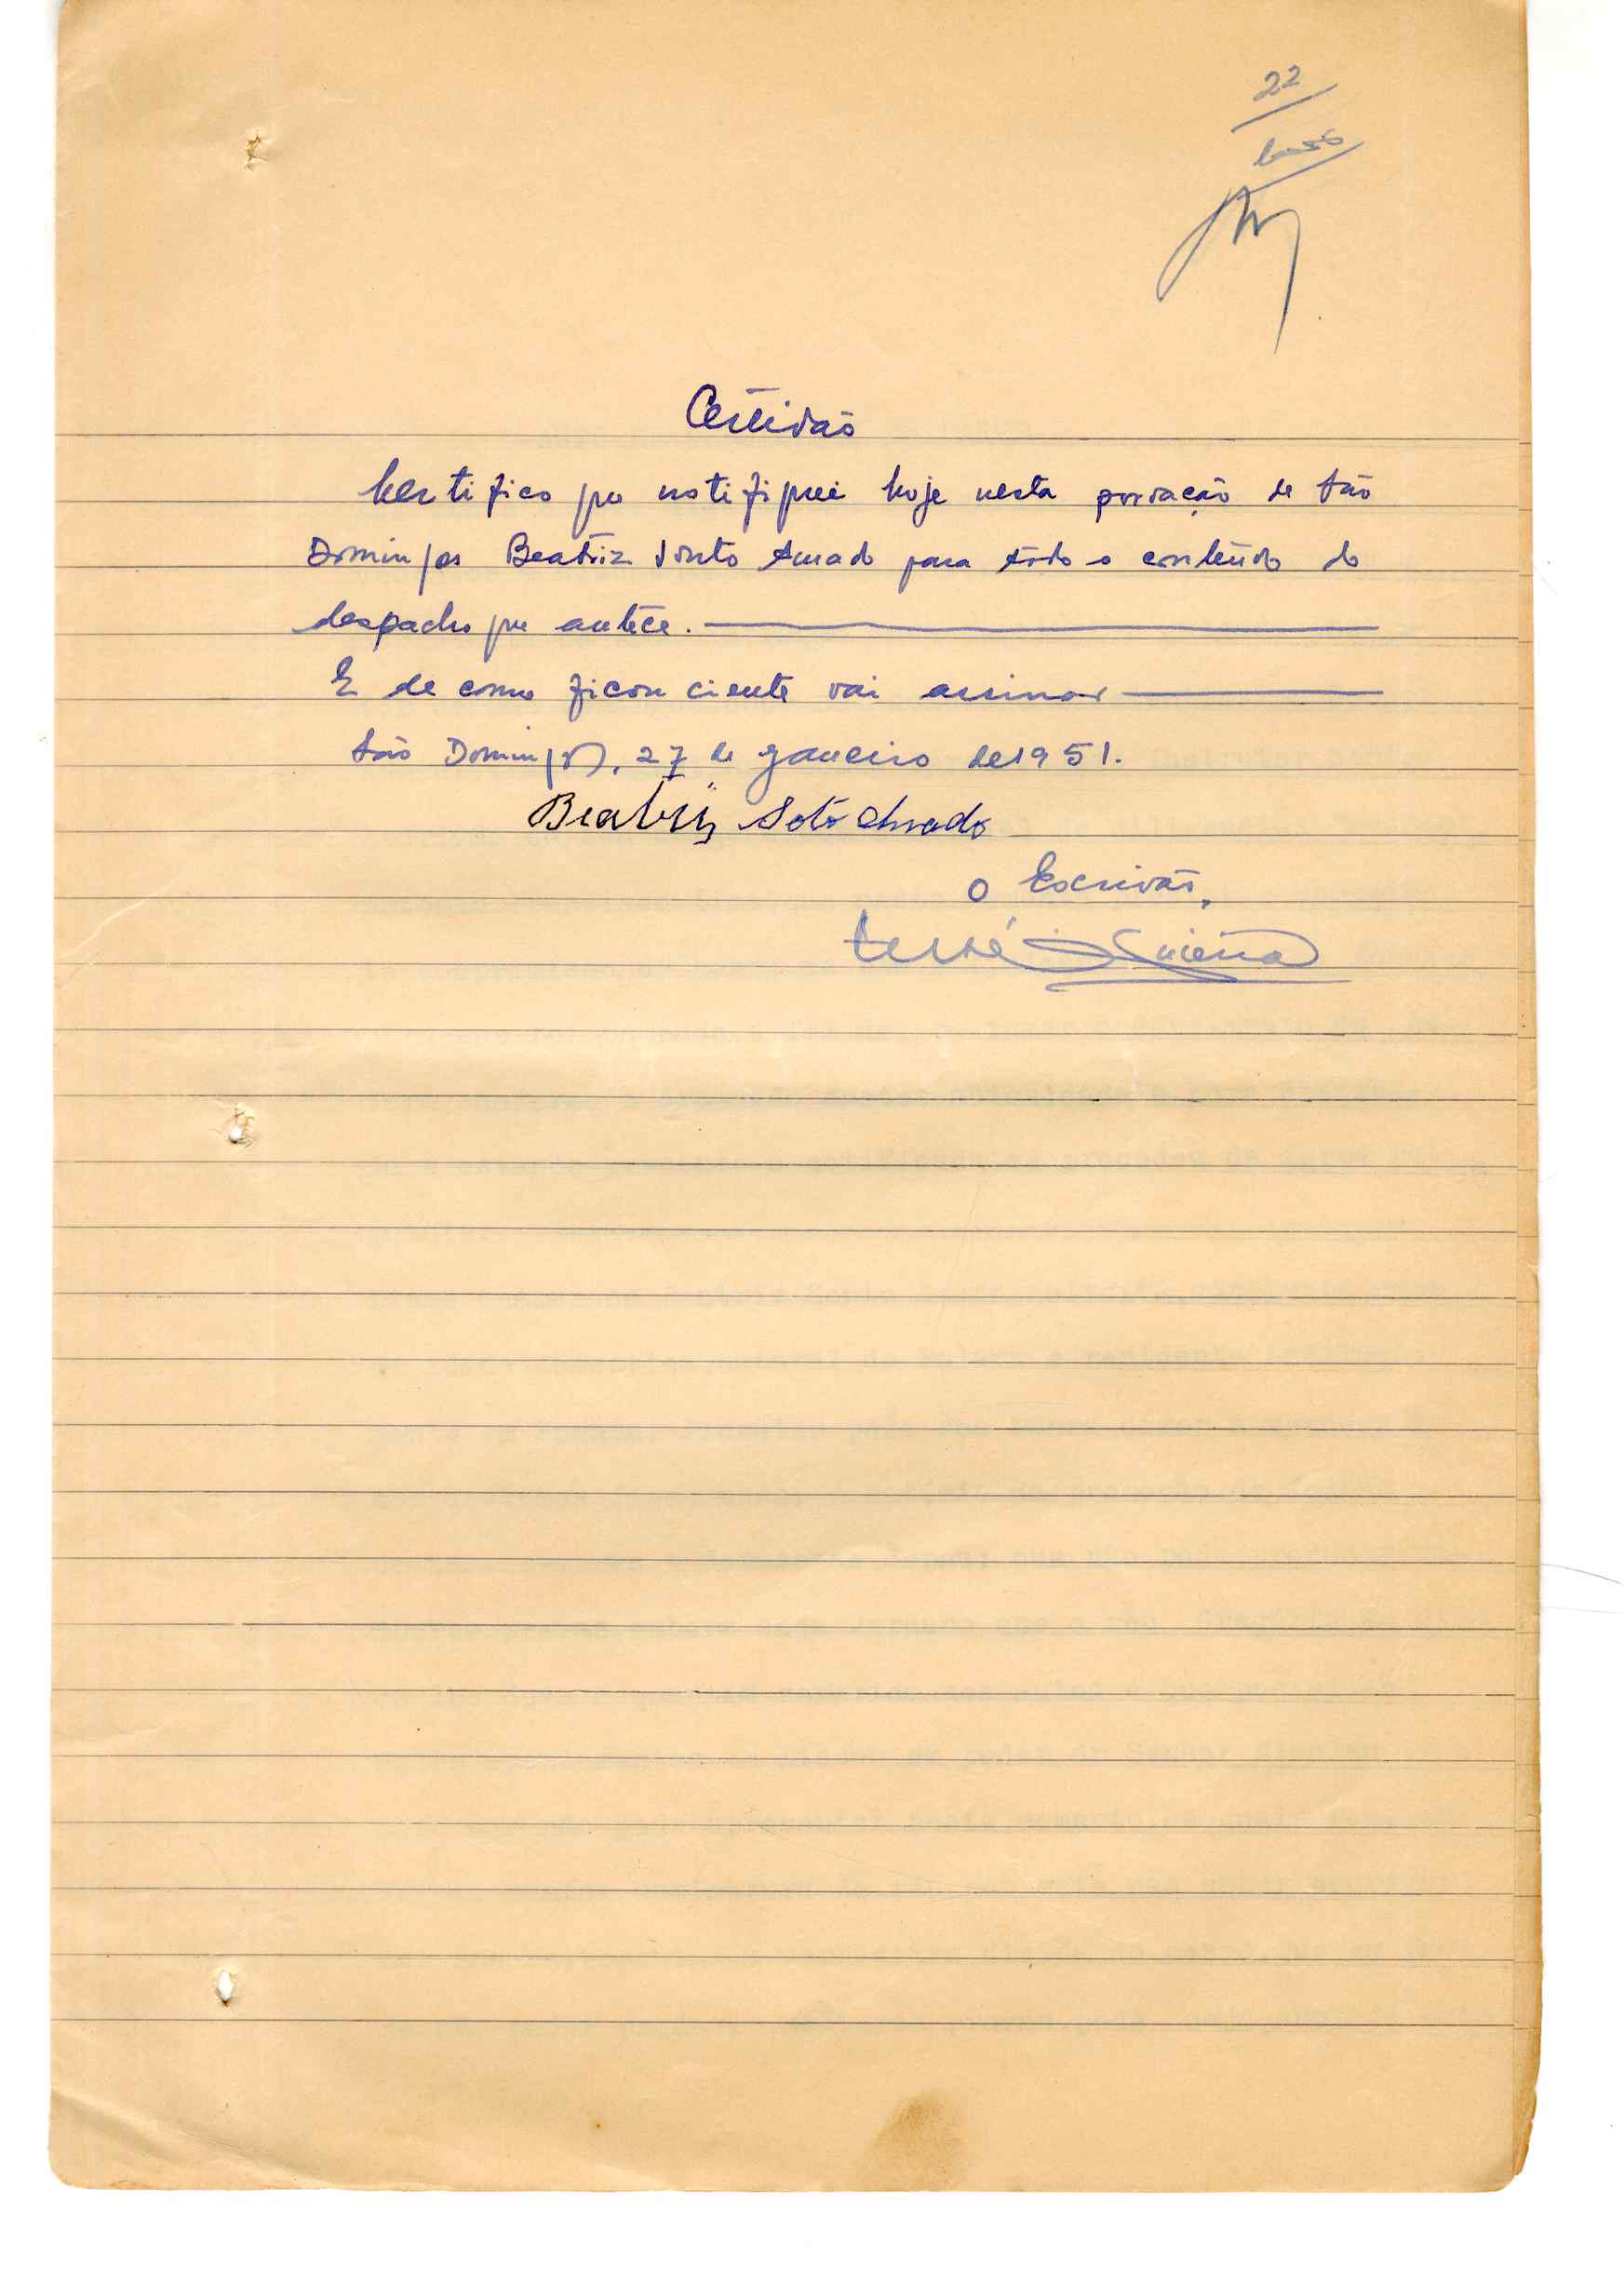 22
Certidão
Certifico que notifiquei hoje nesta povoação de São
Domingos Beatriz Souto Amado para todo o conteúdo do
despacho que antece.
E de como ficou ciente vai assinar
São Domingos, 27 de Janeiro de 1951.
Beatriz Soto Amado
O Escrivão,